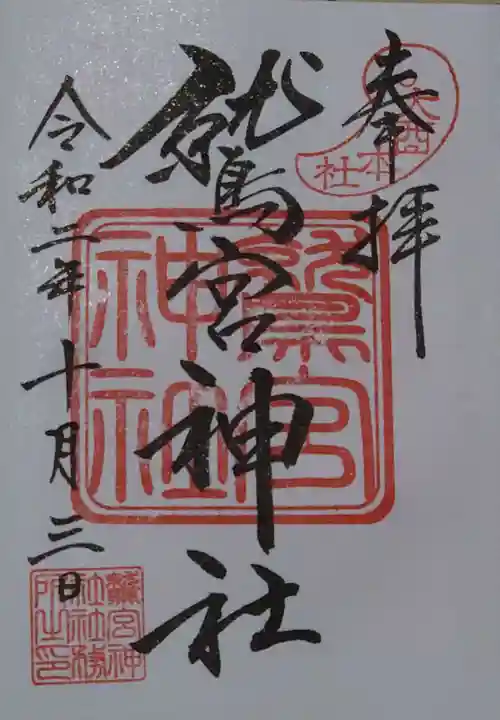 奉拝
大酉本社
鷲宮神社
鷲宮神社
令和二年十月三日
鷲宮神社社務所之印